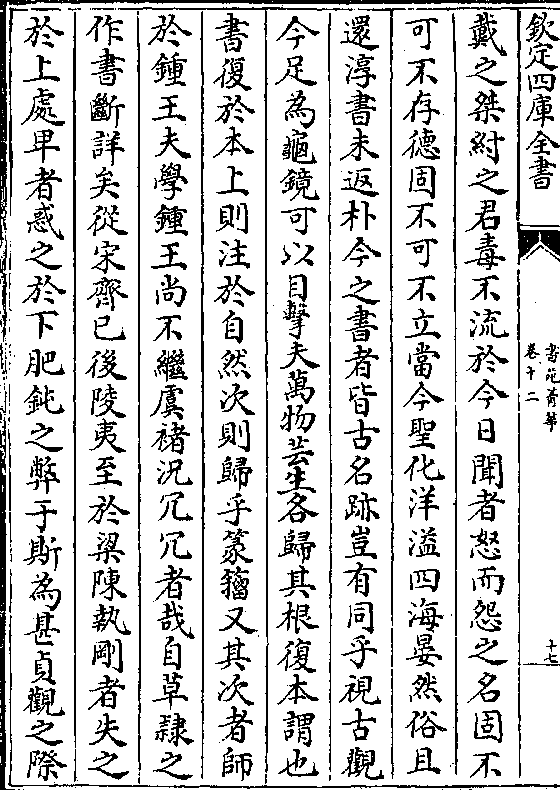 欽定四庫全書
書苑菁華
卷十二
十七
戴之桀紂之君毒不流於今日聞者怒而怨之名固不
可不存德固不可不立當今聖化洋溢四海晏然俗且
還淳書未返朴今之書者皆古名跡豈有同乎視古觀
今足為龜鏡可以目擊夫萬物芸生各歸其根復本謂也
書復於本上則注於自然次則歸乎篆籀又其次者師
於鍾王夫學鍾王尚不繼虞褚況冗冗者哉自草隸之
作書斷詳矣從宋齊已後陵夷至於梁陳執剛者失之
於上處卑者惑之於下肥鈍之弊于斯為甚貞觀之際